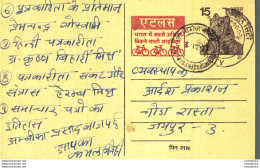 ६) पत्रकारिता के प्रतिमान
प्रेमचन्द गोस्वामी
७) हिन्दी पत्रकारिता
डा. कृष्ण बिहारी मिश्र
८) पत्रकारिता संकट और
संत्रास हेरम्ब मिश्र
९) समाचार पत्रों का
इतिहास
अम्बिका प्रसाद बाजपेई
आपका
एटलस
भारत में सबसे अधिक
बिकने वाली साइकिल
15
व्यवस्थापक
आदर्श प्रकाशन
चौड़ा रास्ता
जयपुर - 3.
पिन PIN